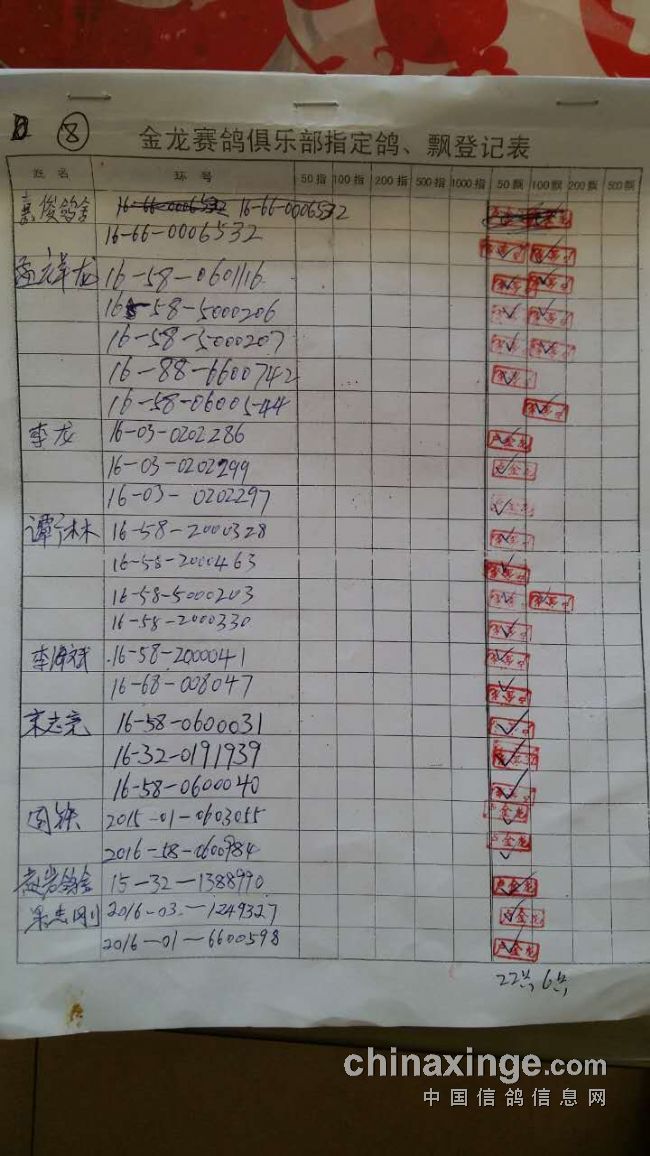 8
金龙赛鸽俱乐部指定鸽、飘登记表
姓名 环号 50指 100指 200指 500指 1000指 50飘 100飘 200飘 500飘
俊鸽舍 16-66-0006532 16-66-0006532
16-66-0006532
龙 16-58-0601116
16-58-5000206
16-58-5000207
16-88-6600742
16-58-0600544
李龙 16-03-0202286 金龙
16-03-0202299 金龙
16-03-0202297
谭 16-58-2000328
16-58-2000463
16-58-5000203
16-58-2000330
李海斌 16-58-2000041
16-68-008047
宋志亮 16-58-0600031
16-32-0191939
16-58-0600040
周铁 2015-01-0603055 金龙
2016-58-0600984 金龙
岩鸽舍 15-32-1388990 金龙
刚 2016-03-1249327 金龙
2016-01-6600598 金龙
22 6
chinaxinge.com
中国信鸽信息网